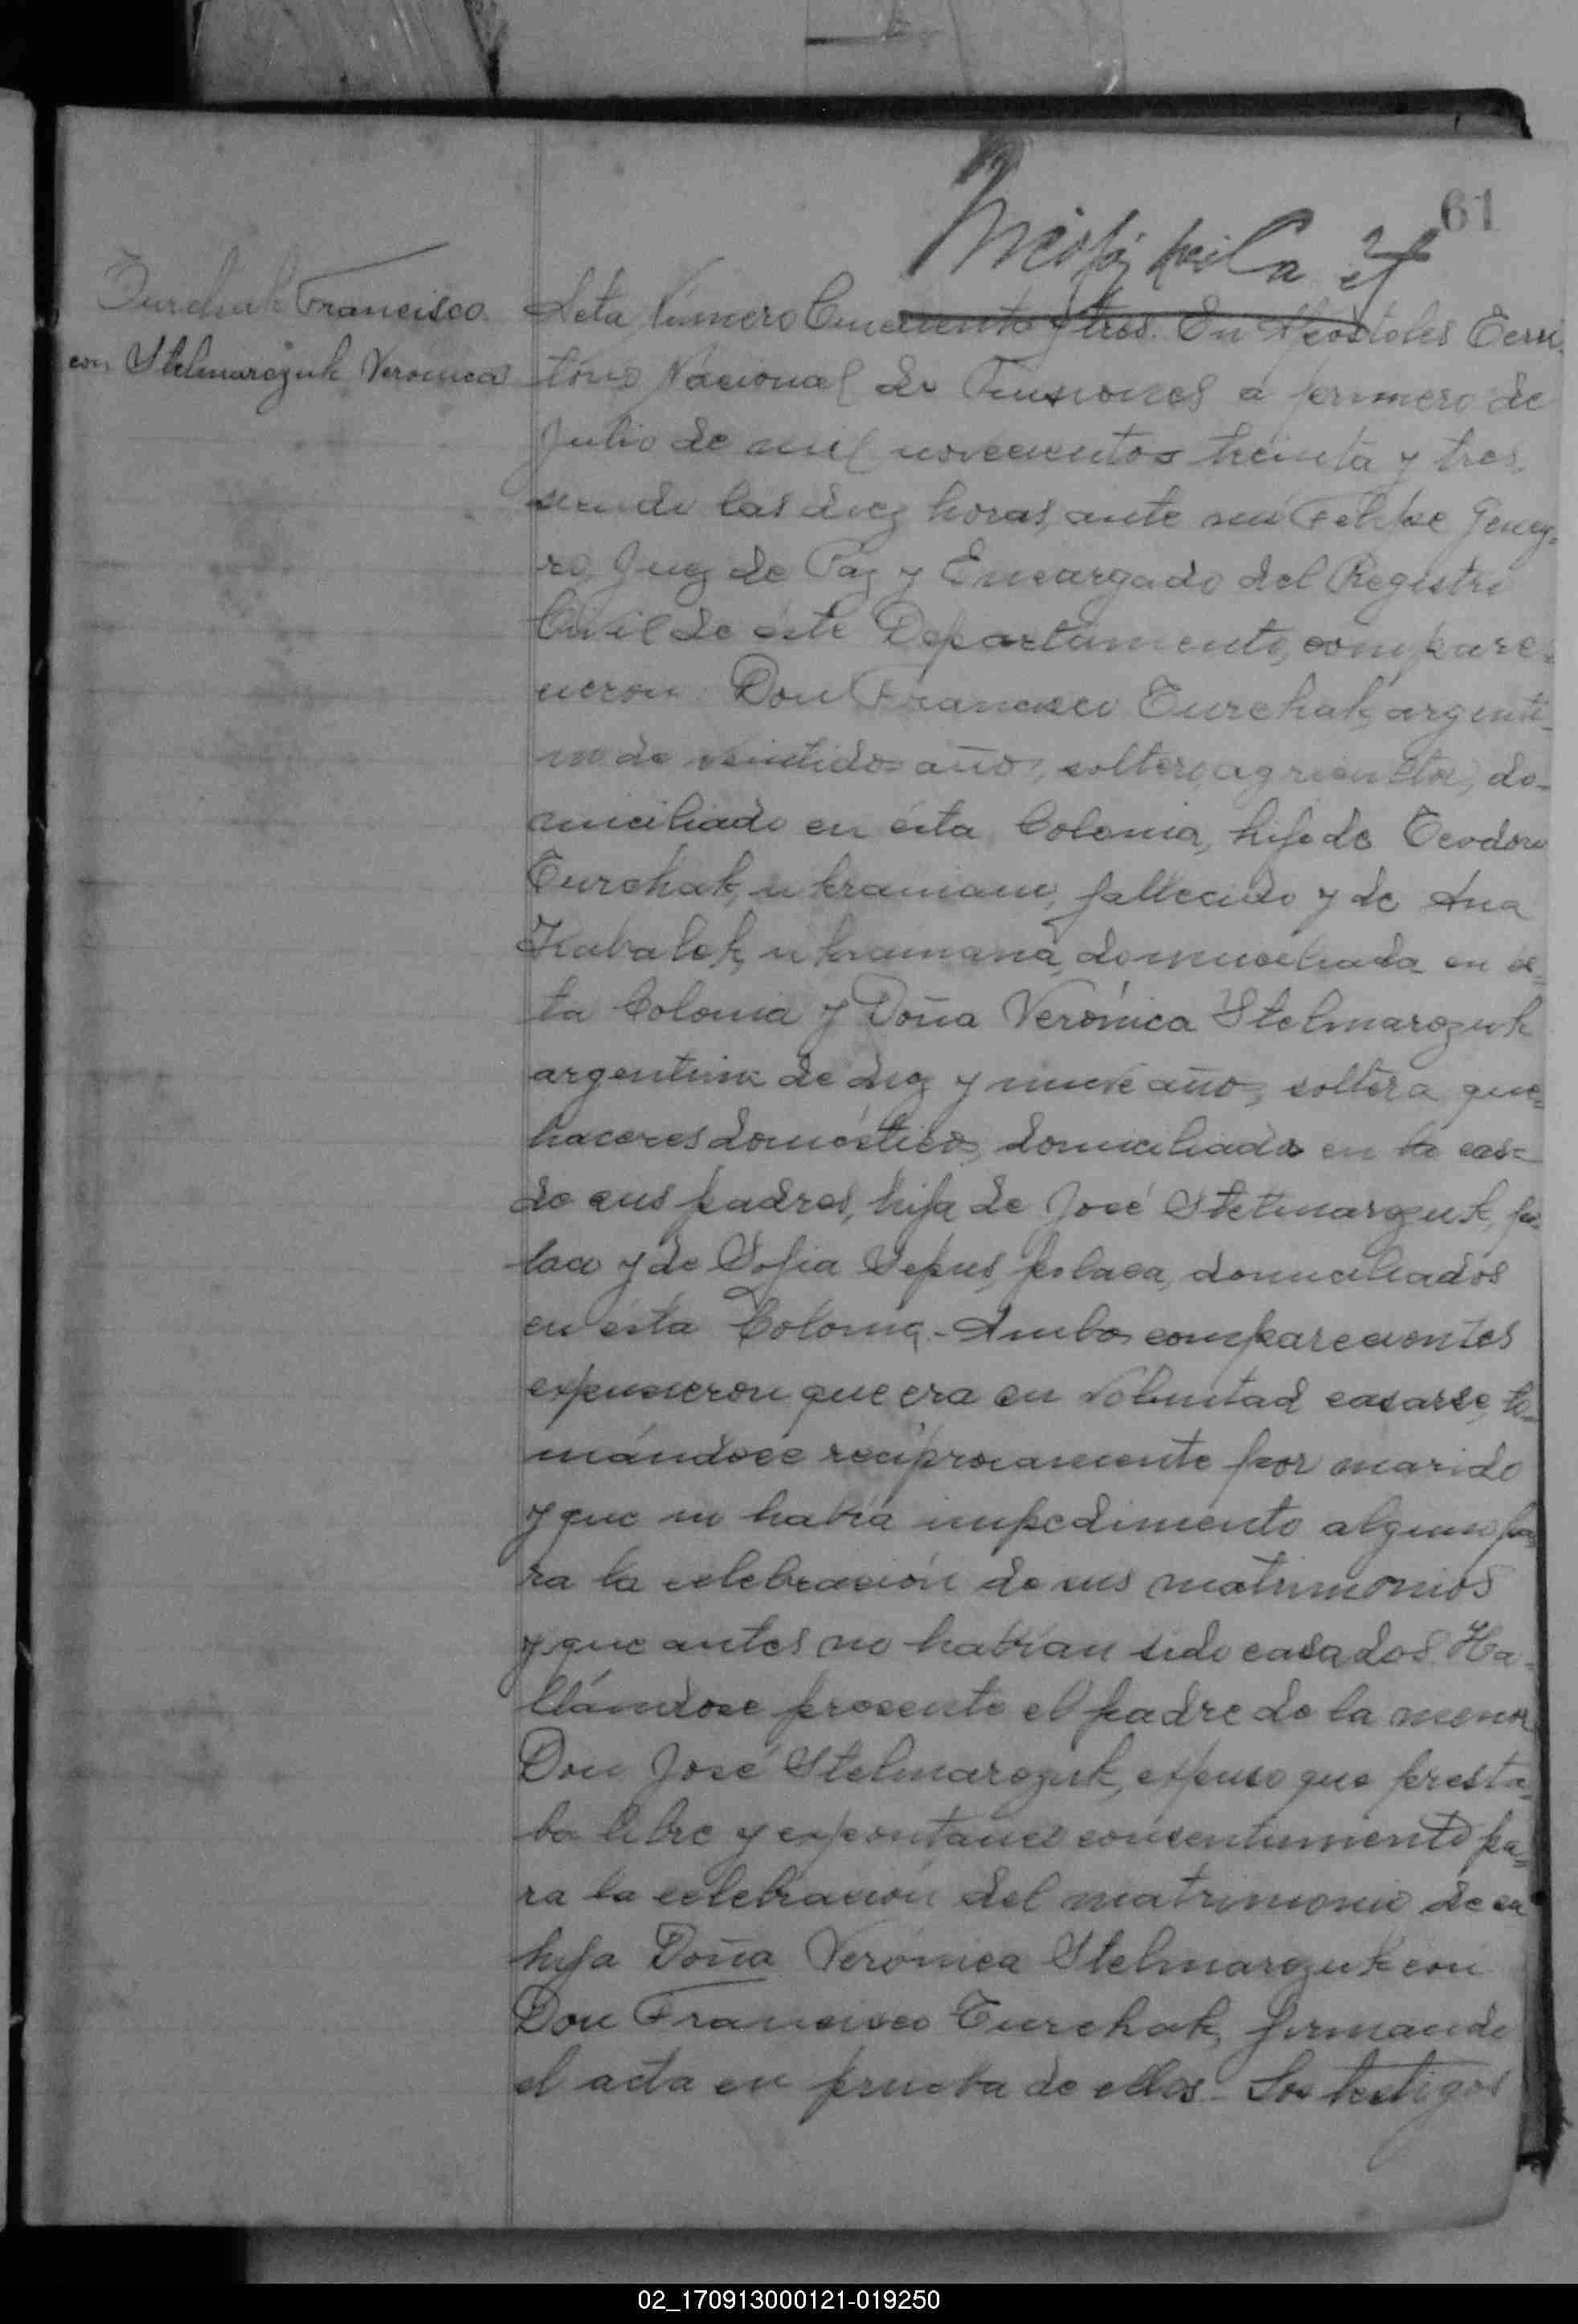 61
Turchak Francisco
con Stelmarczuk Veronica
Acta Número Cincuenta y tres. En Apóstoles Terri-
torio Nacional de Misiones a primero de
Julio de mil novecientos treinta y tres,
siendo las diez horas, ante mi Felipe
ro, Juez de Paz y Encargado del Registro
Civil de éste Departamento, compare-
cieron: Don Francisco Turchak, argenti-
no de veintidos años, soltero, agricultor, do-
miciliado en ésta Colonia, hijo de Teodoro
Turchak, ukraniano, fallecido y de Ana
Kabalek, ukraniana, domiciliada en és-
ta Colonia y Doña Verónica Stelmarczuk
argentina de diez y nueve años, soltera, que-
haceres domésticos, domiciliada en la casa
de sus padres, hija de José Stelmarczuk, po-
laco y de Sofia Sepus, polaca, domiciliados
en ésta Colonia.- Ambos comparecientes
expusieron que era su voluntad casarse, to-
mándose recíprocamente por marido
y que no había impedimento alguno pa-
ra la celebración de sus matrimonios
y que antes no habían sido casados. Ha-
llándose presente el padre de la menor
Don José Stelmarczuk, expuso que presta-
ba libre y expontaneo consentimiento pa-
ra la celebración del matrimonio de su
hija Doña Verónica Stelmarczuk con
Don Francisco Turchak, firmando
el acta en prueba de ellos.- Los testigos
02_170913000121-019250